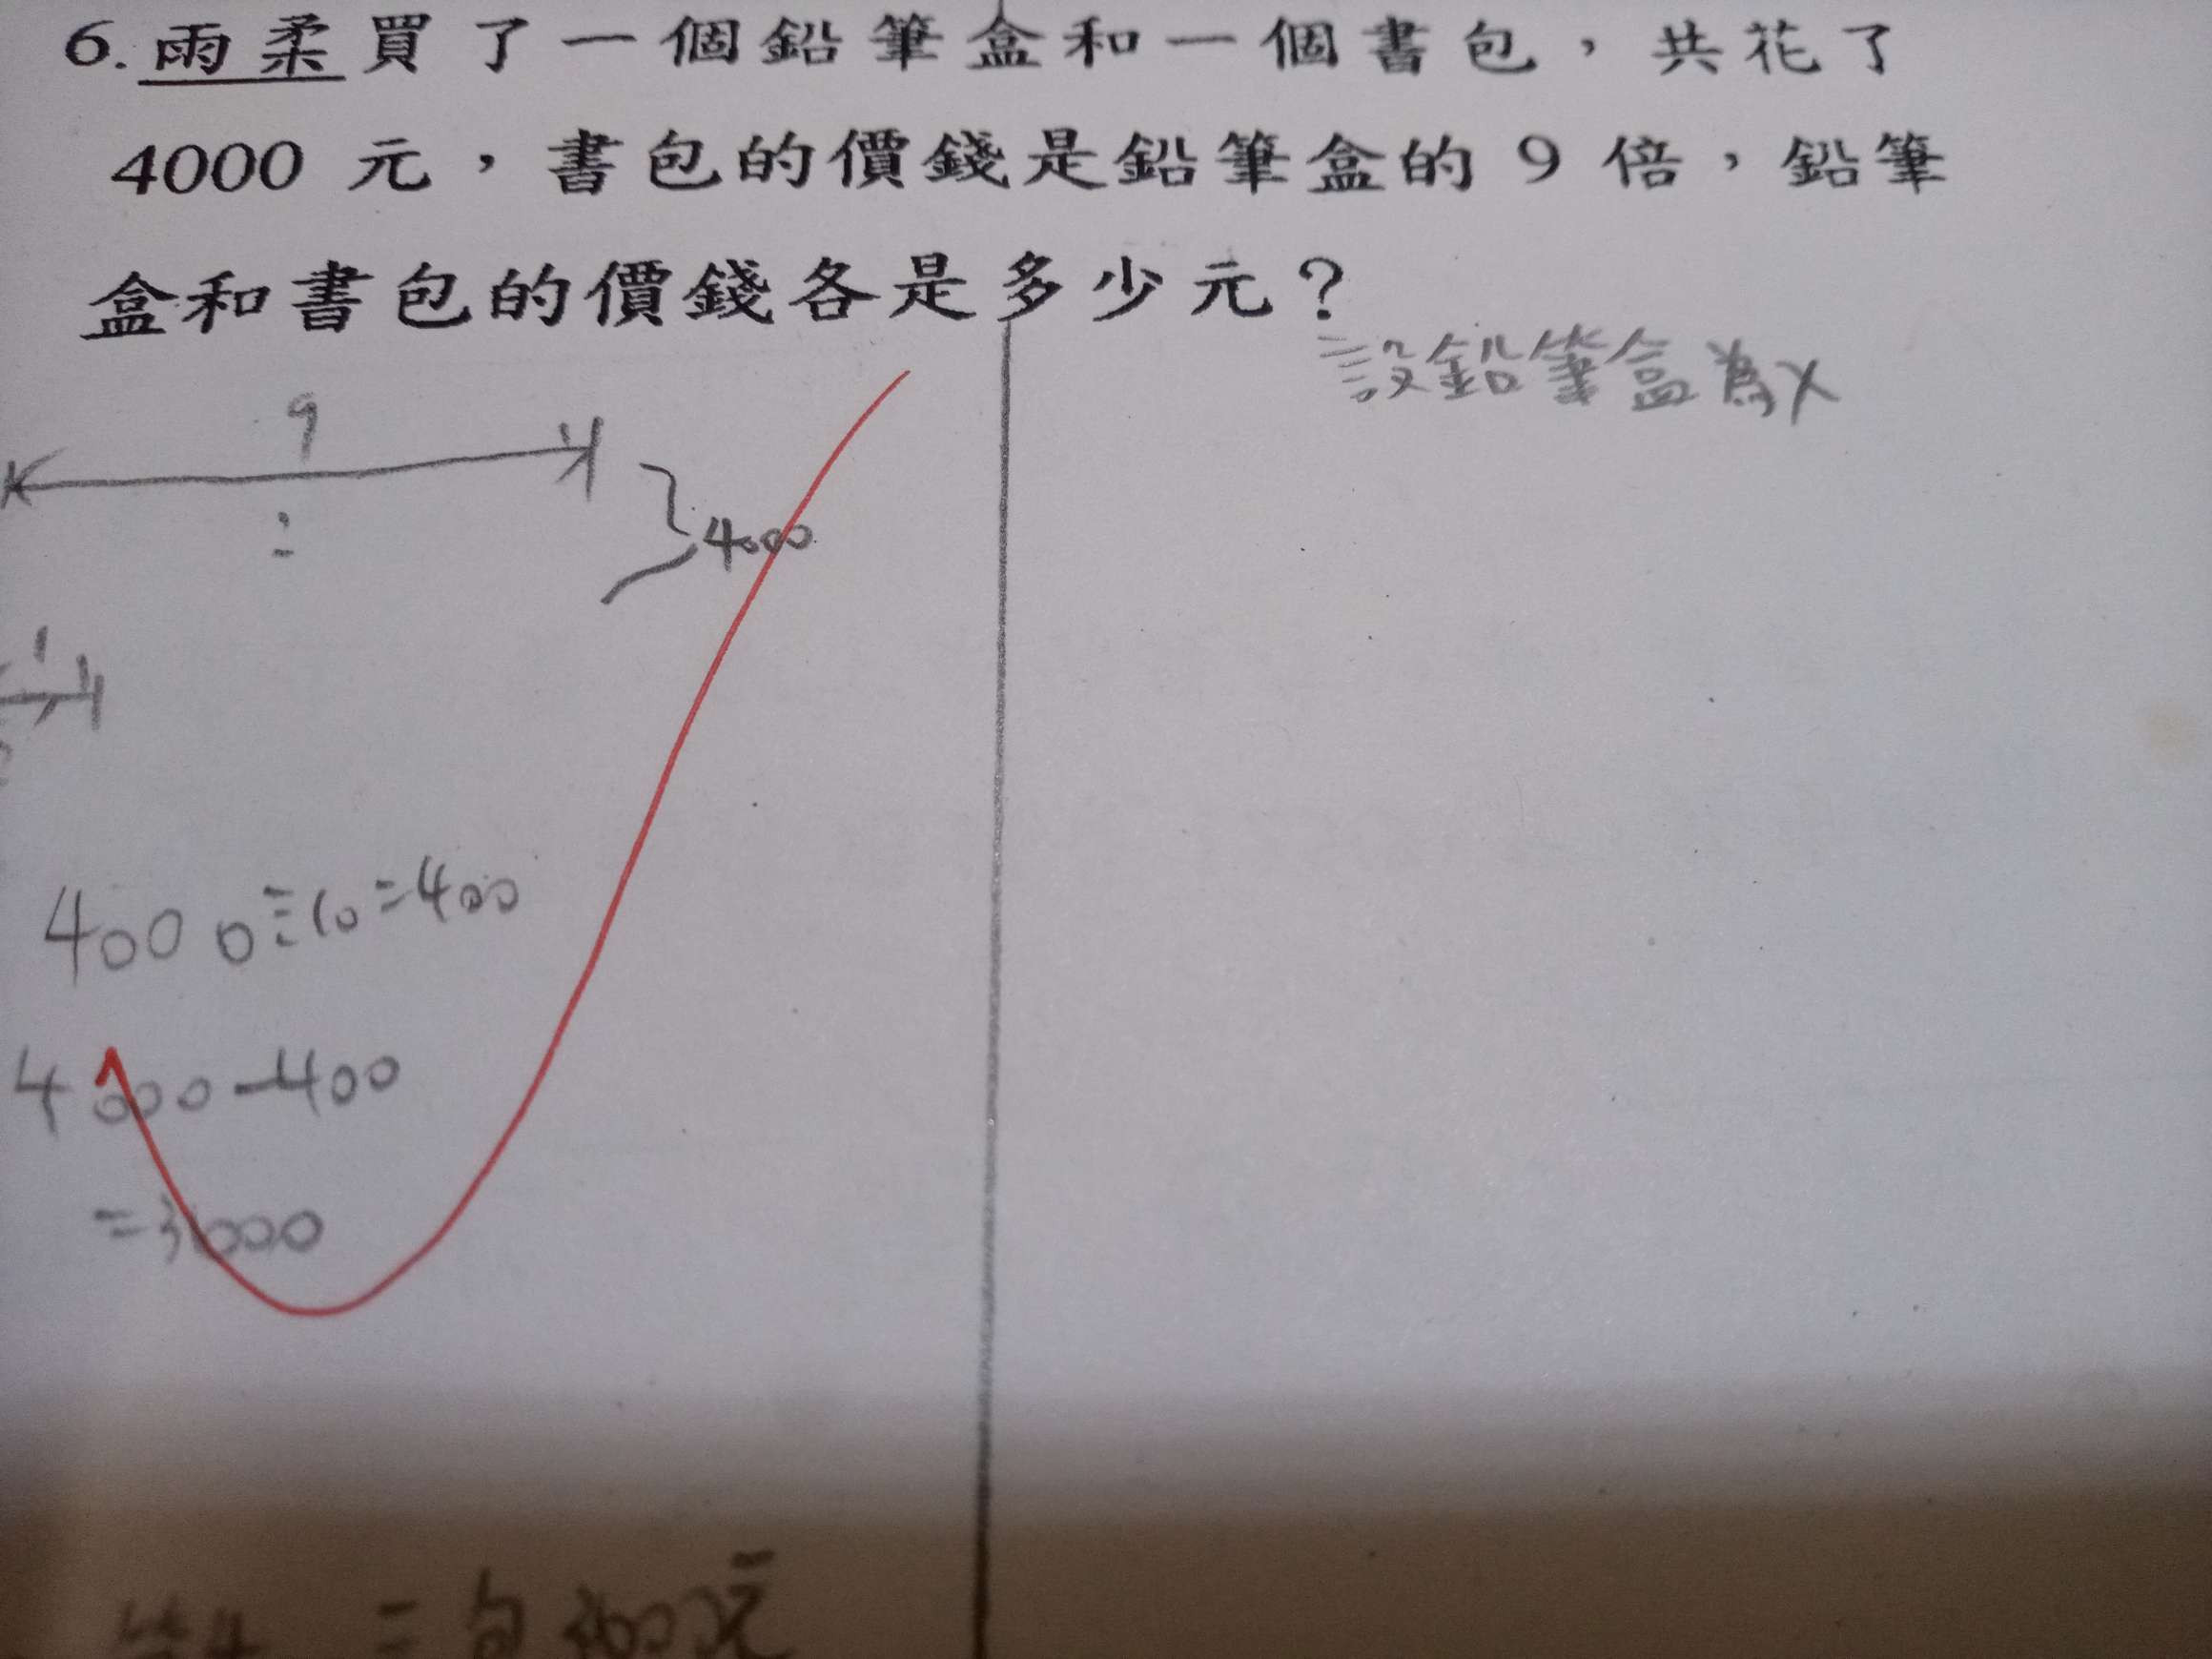 6. 雨柔買了一個鉛筆盒和一個書包，共花了
4000 元，書包的價錢是鉛筆盒的 9 倍，鉛筆
盒和書包的價錢各是多少元？
設鉛筆盒為x
9
4000
1
4000÷10=400
4000-400
=3600
包3600元